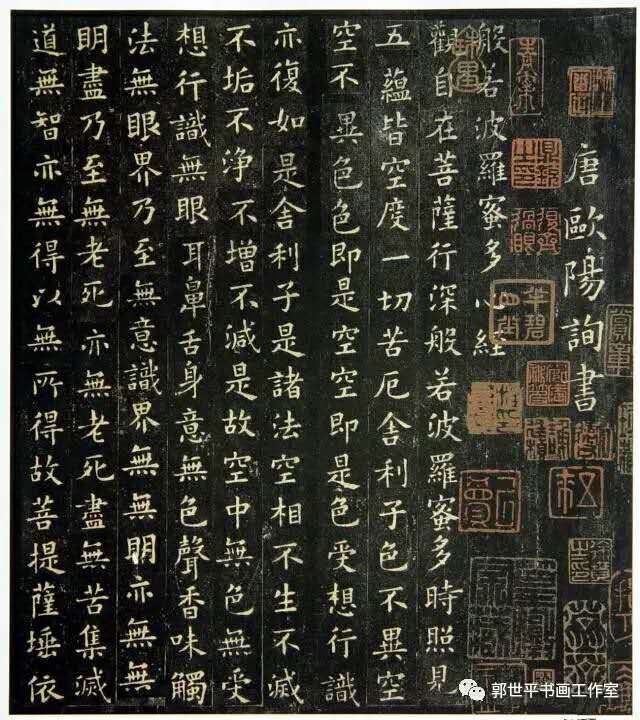 唐歐陽詢書
般若波羅蜜多心經
觀自在菩薩行深般若波羅蜜多時照見
五蘊皆空度一切苦厄舍利子色不異空
空不異色色即是空空即是色受想行識
亦復如是舍利子是諸法空相不生不滅
不垢不淨不增不減是故空中無色無受
想行識無眼耳鼻舌身意無色聲香味觸
法無眼界乃至無意識界無無明亦無無
明盡乃至無老死亦無老死盡無苦集滅
道無智亦無得以無所得故菩提薩埵依
郭世平书画工作室